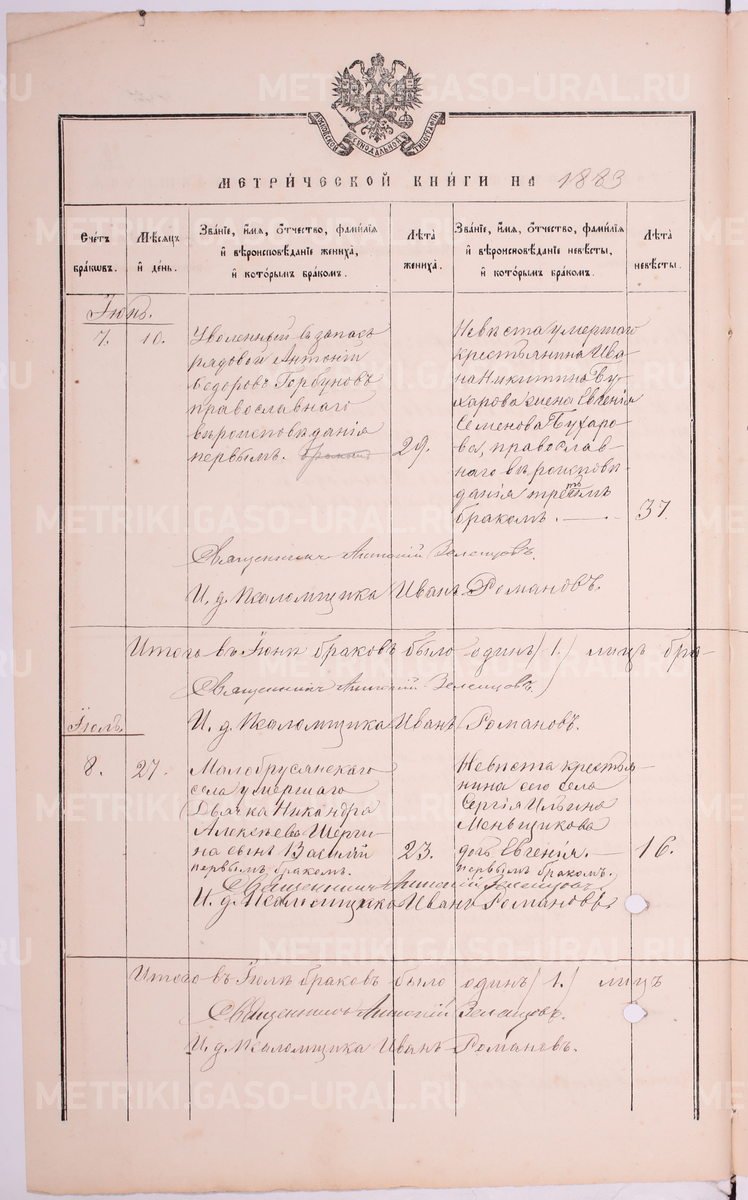 METRIKI.GASO-URAL.RU
МОСКОВСКОЙ СѴНОДАЛЬНОЙ ТИПОГРАФІИ
МЕТРИ́ЧЕСКОЙ КНИ́ГИ НА 1883
Сче́тъ бра́кωвъ.
Мѣ́сяцъ и҆ де́нь.
Зва́нїе, и҆́мя, ѻ҆́тчество, фами́лїя
и҆ вѣроисповѣ́данїе жениха̀,
и҆ кото́рымъ бра́комъ.
Лѣ́та жениха̀.
Зва́нїе, и҆́мя, ѻ҆́тчество, фами́лїя
и҆ вѣроисповѣ́данїе невѣ́сты,
и҆ кото́рымъ бра́комъ.
Лѣ́та невѣ́сты.
Іюнь.
7. 10.
Уволенный въ запасъ
рядовой Антоній
Ѳедоровъ Горбуновъ
православнаго
вѣроисповѣданія
первымъ. бракомъ
29.
Невѣста умершаго
крестьянина Ива-
на Никитина Бу-
харова жена Евгенія
Семенова Бухаро-
ва, православ-
наго вѣроисповѣ-
данія третьимъ
бракомъ.
37.
Священникъ Антоній
И. д. Псаломщика Иванъ Романовъ.
Итого въ Іюнѣ браковъ было одинъ /1./ лицъ бра-
Священникъ Антоній
И. д. Псаломщика Иванъ Романовъ.
Іюль.
8. 27.
Малобрусянскаго
села умершаго
Дьячка Никандра
Алексѣева Шерги-
на сынъ Василій
первымъ бракомъ.
23.
Невѣста крестья-
нина сего села
Сергія Ильина
Меньщикова
дочь Евгенія.
первымъ бракомъ.
16.
Священникъ Антоній
И. д. Псаломщика Иванъ Романовъ
Итого въ Іюлѣ браковъ было одинъ /1./ лицъ
Священникъ Антоній
И. д. Псаломщика Иванъ Романовъ.